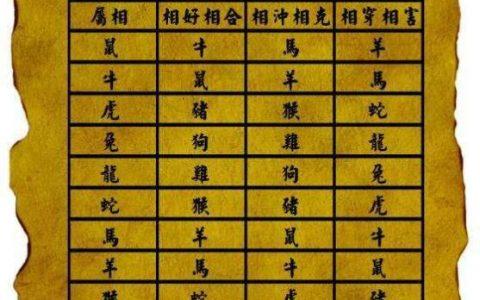 屬相 相好相合 相沖相克 相穿相害
鼠 牛 馬 羊
牛 鼠 羊 馬
虎 豬 猴 蛇
兔 狗 雞 龍
龍 雞 狗 兔
蛇 猴 豬 虎
馬 羊 鼠 牛
羊 馬 牛 鼠
猴 蛇 虎 豬